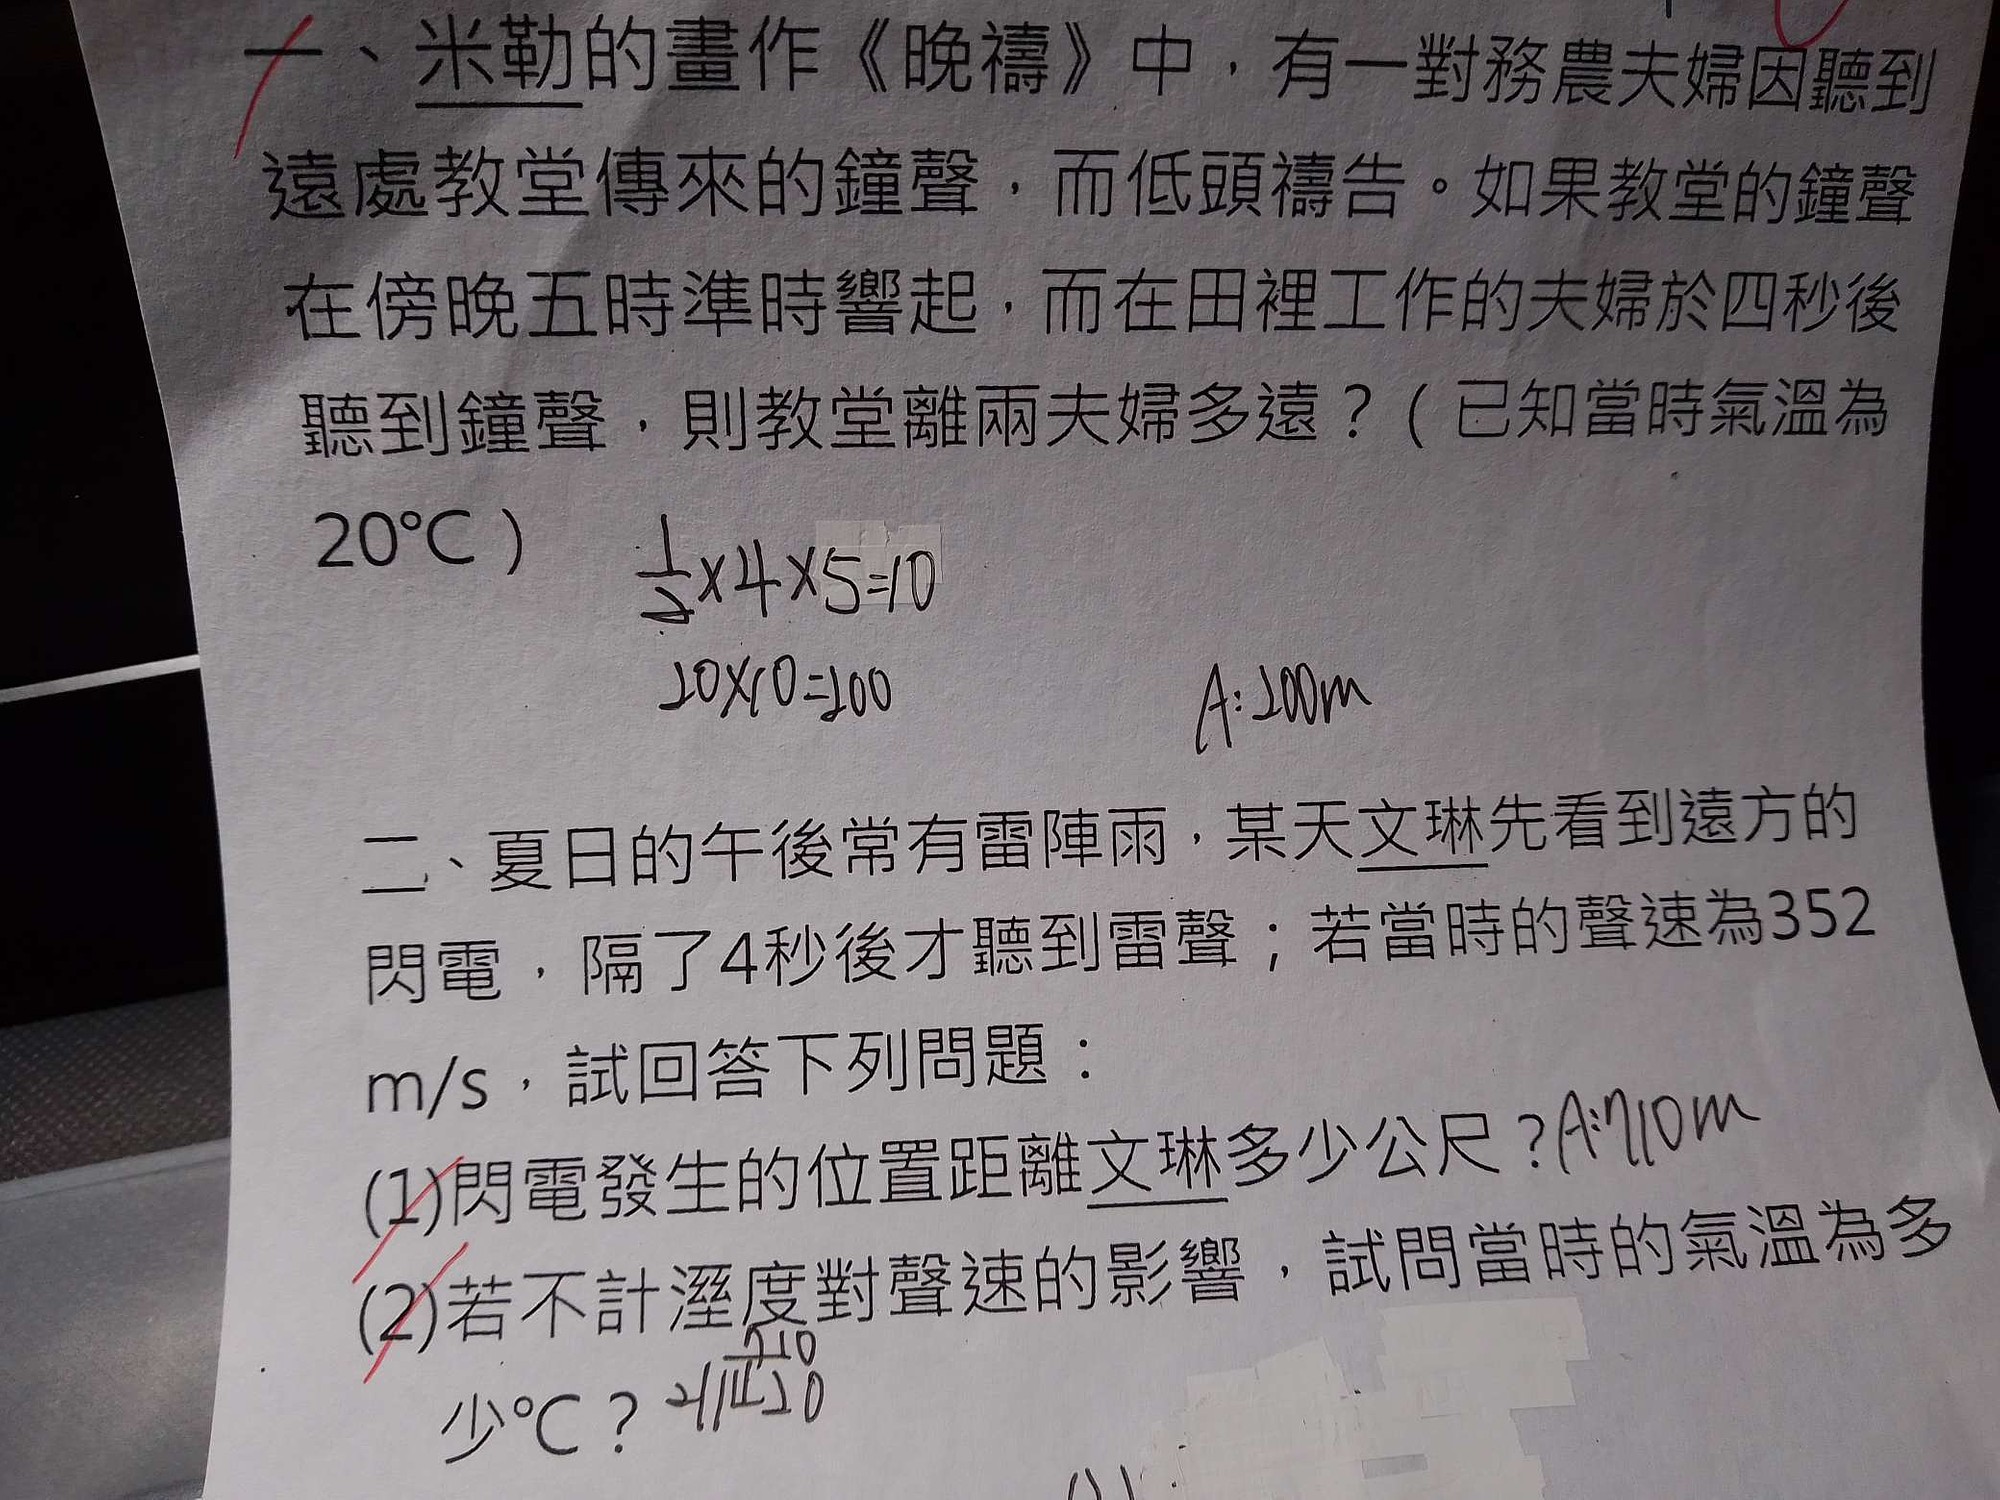 一、米勒的畫作《晚禱》中，有一對務農夫婦因聽到
遠處教堂傳來的鐘聲，而低頭禱告。如果教堂的鐘聲
在傍晚五時準時響起，而在田裡工作的夫婦於四秒後
聽到鐘聲，則教堂離兩夫婦多遠？（已知當時氣溫為
20℃）
1/2×4×5=10
20×10=200
A:200m
二、夏日的午後常有雷陣雨，某天文琳先看到遠方的
閃電，隔了4秒後才聽到雷聲；若當時的聲速為352
m/s，試回答下列問題：
(1)閃電發生的位置距離文琳多少公尺？A:710m
(2)若不計溼度對聲速的影響，試問當時的氣溫為多
少℃？